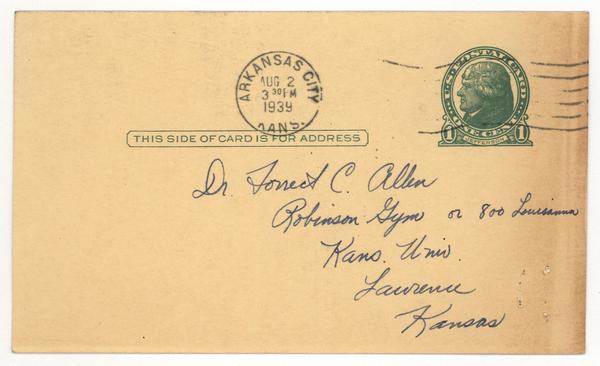 ARKANSAS CITY
AUG 2
3 30 PM
1939
KANS.
U.S. POSTAL CARD
1 ONE CENT 1
JEFFERSON
THIS SIDE OF CARD IS FOR ADDRESS
Dr. Forrest C. Allen
Robinson Gym or 800 Louisianna
Kans. Univ.
Lawrence
Kansas